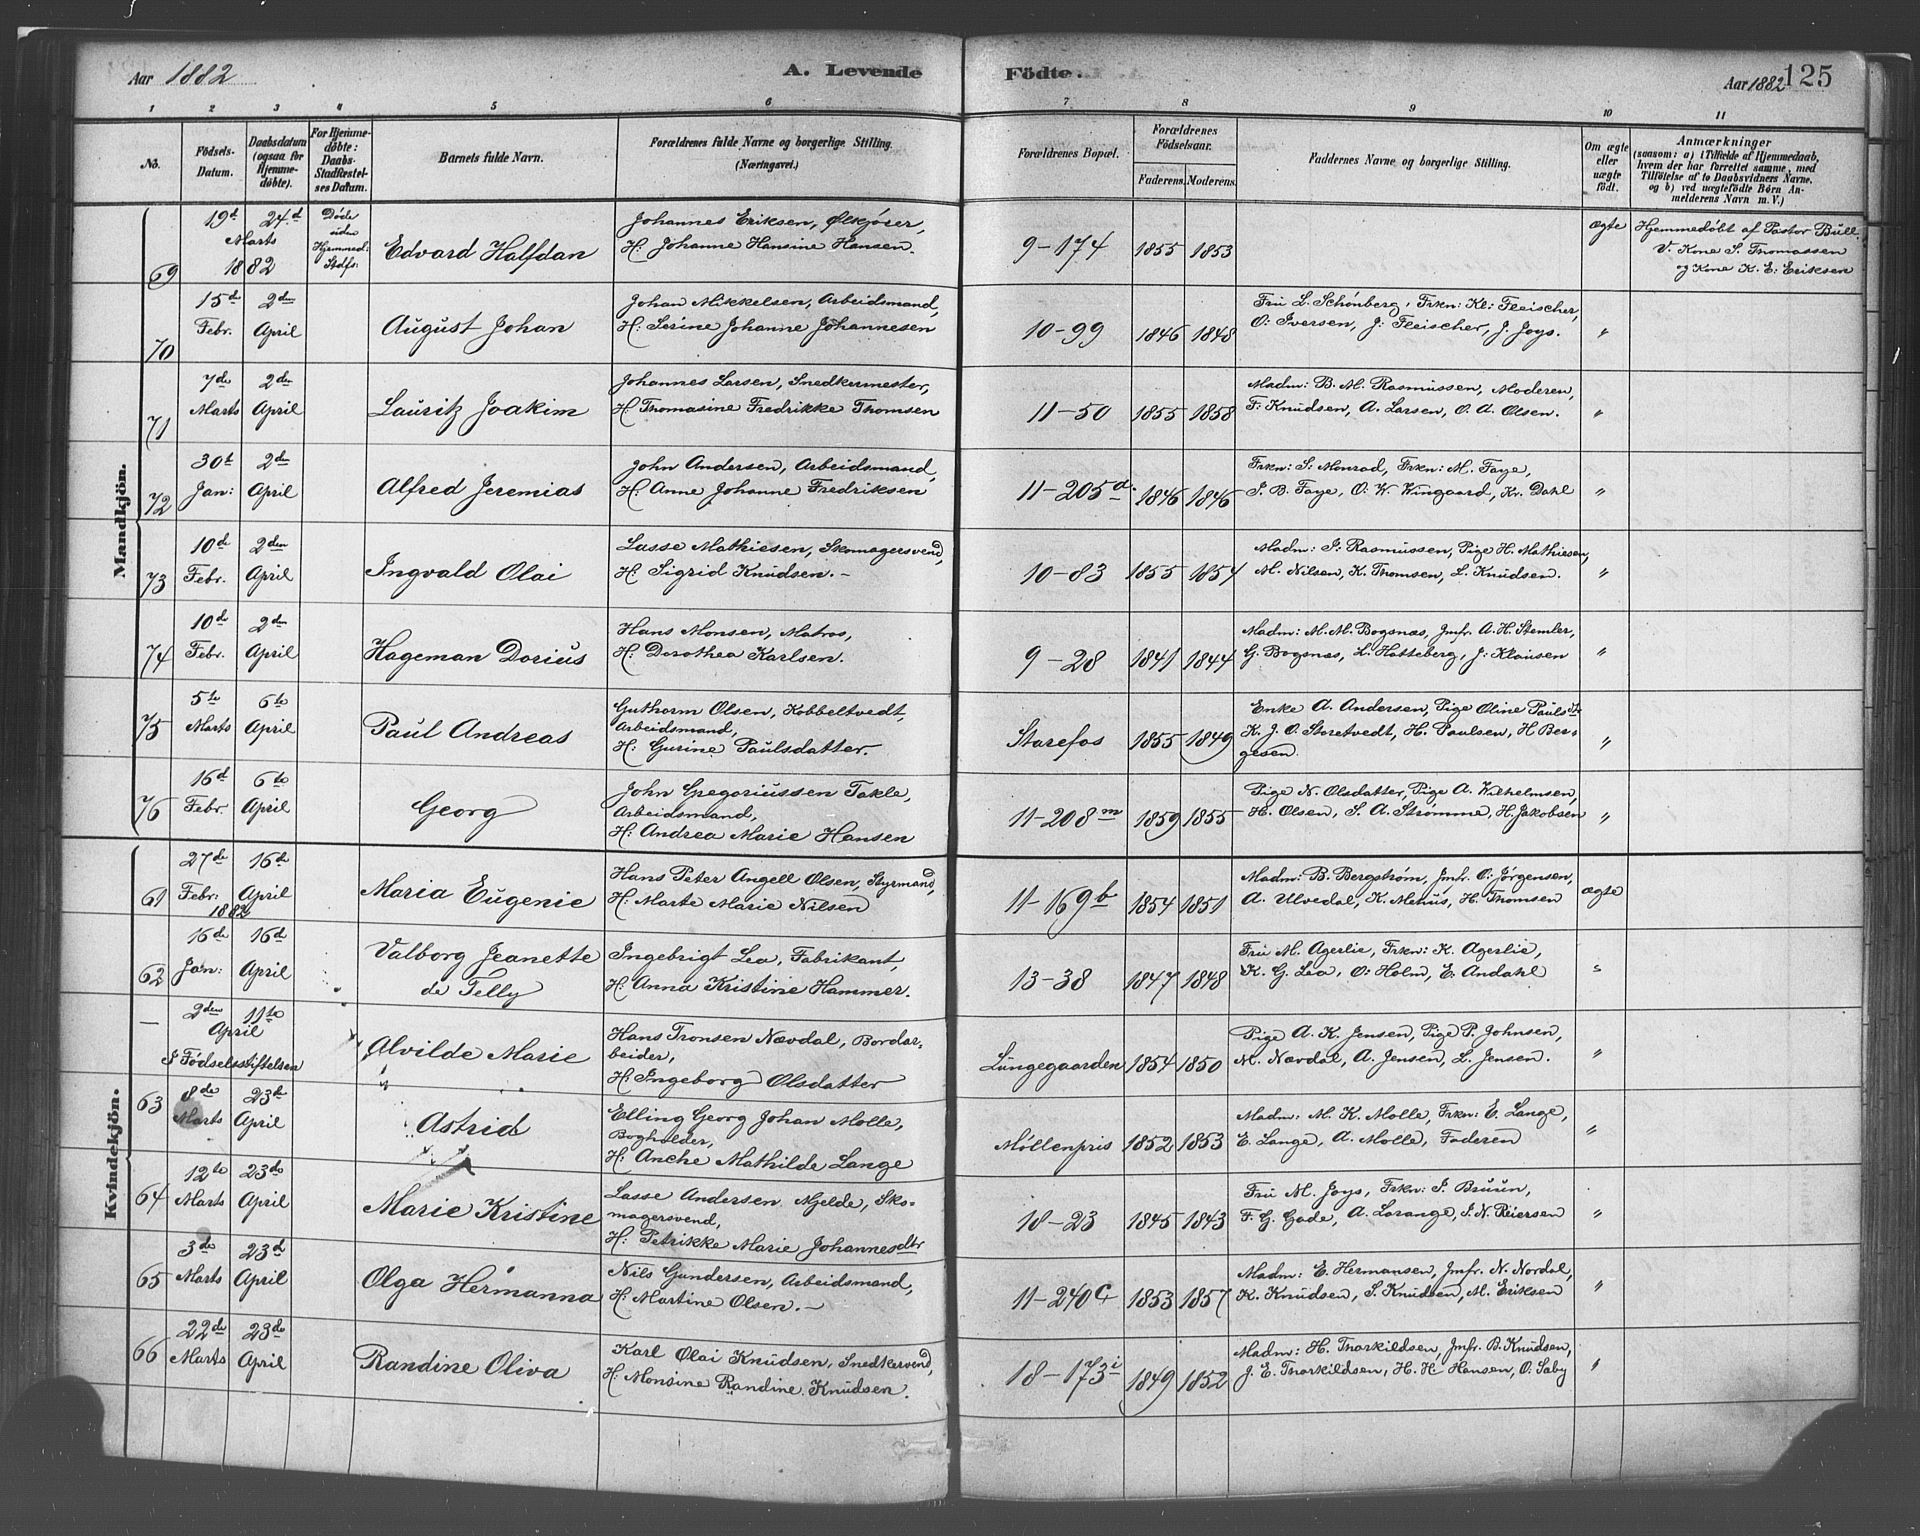 Aar 1882 A. Levende Födte. Aar 1882 125
1 2 3 4 5 6 7 8 9 10 11
No. Födsels-Datum. Daabsdatum (ogsaa for Hjemmedöbte). For Hjemmedöbte: Daabs-Stadfæstelses Datum. Barnets fulde Navn. Forældrenes fulde Navne og borgerlige Stilling. (Næringsvei.) Forældrenes Bopæl. Forældrenes Födselsaar. Faderens. Moderens. Faddernes Navne og borgerlige Stilling. Om ægte eller uægte födt. Anmærkninger (saasom: a) i Tilfælde af Hjemmedaab, hvem der har forrettet samme, med Tilföielse af to Daabsvidners Navne, og b) ved uægtefödte Börn Anmelderens Navn m. V.)
Mandkjön.
69 19t 24d Marts 1882 Døde siden Hjemmed: Stdfs: Edvard Halfdan Johannes Eriksen, Ølkjører, 9-174 1855 1853 ægte Hjemmedøbt af Pastor Bull.
H: Johanne Hansine Hansen. V. Kone S. Thomassen
og Kone K. E. Eriksen
70 15de Febr. 2den April August Johan Johan Mikkelsen, Arbeidsmand, 10-99 1846 1848 Fru L. Schönberg, Frkn: Kl: Fleischer, "
H: Serine Johanne Johannesen O: Iversen, J: Fleischer, J. Joys.
71 7de Marts 2den April Lauritz Joakim Johannes Larsen, Snedkermester, 11-50 1855 1858 Madm: B. M. Rasmussen, Moderen, "
H: Thomasine Fredrikke Thomsen F: Knudsen, A. Larsen, O. A. Olsen.
72 30t Jan: 2den April Alfred Jeremias John Andersen, Arbeidsmand, 11-205d. 1846 1846 Frkn: S: Monrad, Frkn: M. Faye, "
H: Anne Johanne Fredriksen J. B. Faye, O. W. Wingaard, Kr. Dahl
73 10de Febr. 2den April Ingvald Olai Lasse Mathiesen, Skomagersvend, 10-83 1855 1854 Madm: J: Rasmussen, Pige H. Mathiesen, "
H. Sigrid Knudsen.- M. Nilsen, K. Thomsen, L. Knudsen.
74 10de Febr. 2den April Hageman Dorius Hans Monsen, Matros, 9-28 1841 1844 Madm: M. M. Bogsnæs, Jmfr. A. H. Stemler, "
H: Dorothea Karlsen. G. Bogsnæs, L. Hatteberg, J: Klausen
75 5te Marts 6te April Paul Andreas Guthorm Olsen, Kobbeltvedt, Starefos 1855 1849 Enke A. Andersen, Pige Oline Paulsdt "
Arbeidsmand, K. J. O. Storetvedt, H. Paulsen, H Ber-
H: Gurine Paulsdatter. gesen.
76 16d Febr. 6te April Georg John Gregoriussen Takle, 11-208m 1859 1855 Pige N. Olsdatter, Pige A. Vilhelmsen, "
Arbeidsmand, H. Olsen, S. A. Strømme, H. Jakobsen
H: Andrea Marie Hansen
Kvindekjön.
61 27de Febr: 1882 16d April Maria Eugenie Hans Peter Angell Olsen, Styrmand, 11-169b 1854 1851 Madm: B. Bergstrøm, Jmfr. O: Jørgensen, ægte
H: Marte Marie Nilsen A. Ulvedal, K. Mehus, H. Thomsen
62 16de Jan: 16d April Valborg Jeanette Ingebrigt Lea, Fabrikant, 13-38 1847 1848 Fru M. Agerlie, Frkn: K. Agerlie, "
de Telly H: Anna Kristine Hammer. K. G. Lea, O: Holm, E: Andahl
— 2den 11te April Alvilde Marie Hans Tronsen Nævdal, Bordar- Lungegaarden 1854 1850 Pige A. K. Jensen, Pige P. Johnsen, "
I Fødselsstiftelsen beider, M. Nævdal, A. Jensen, L. Jensen.
H: Ingeborg Olsdatter
63 8de Marts 23de April Astrid Elling Georg Johan Molle, Møllenpris 1852 1853 Madm: M. K. Molle, Frkn: E. Lange, "
Bogholder, E. Lange, A. Molle, Faderen
H: Anche Mathilde Lange
64 12te Marts 23de April Marie Kristine Lasse Andersen Mjelde, Sko- 18-23 1845 1843 Fru M. Joys, Frkn: S. Bruun, "
magersvend, F. G. Gade, A. Lorange, S. N. Reiersen
H: Petrikke Marie Johannesdtr
65 3de Marts 23d April Olga Hermanna Nils Gundersen, Arbeidsmand, 11-240c 1853 1857 Madm: E. Hermansen, Jmfr. N. Nordal, "
H: Martine Olsen.- K. Knudsen, S. Knudsen, M. Eriksen
66 22de Marts 23de April Randine Oliva Karl Olai Knudsen, Snedkersvend, 18-173i 1849 1852 Madm: H. Thorkildsen, Jmfr. B. Knudsen, "
H: Monsine Randine Knudsen. J. E. Thorkildsen, H. H. Hansen, O. Saby